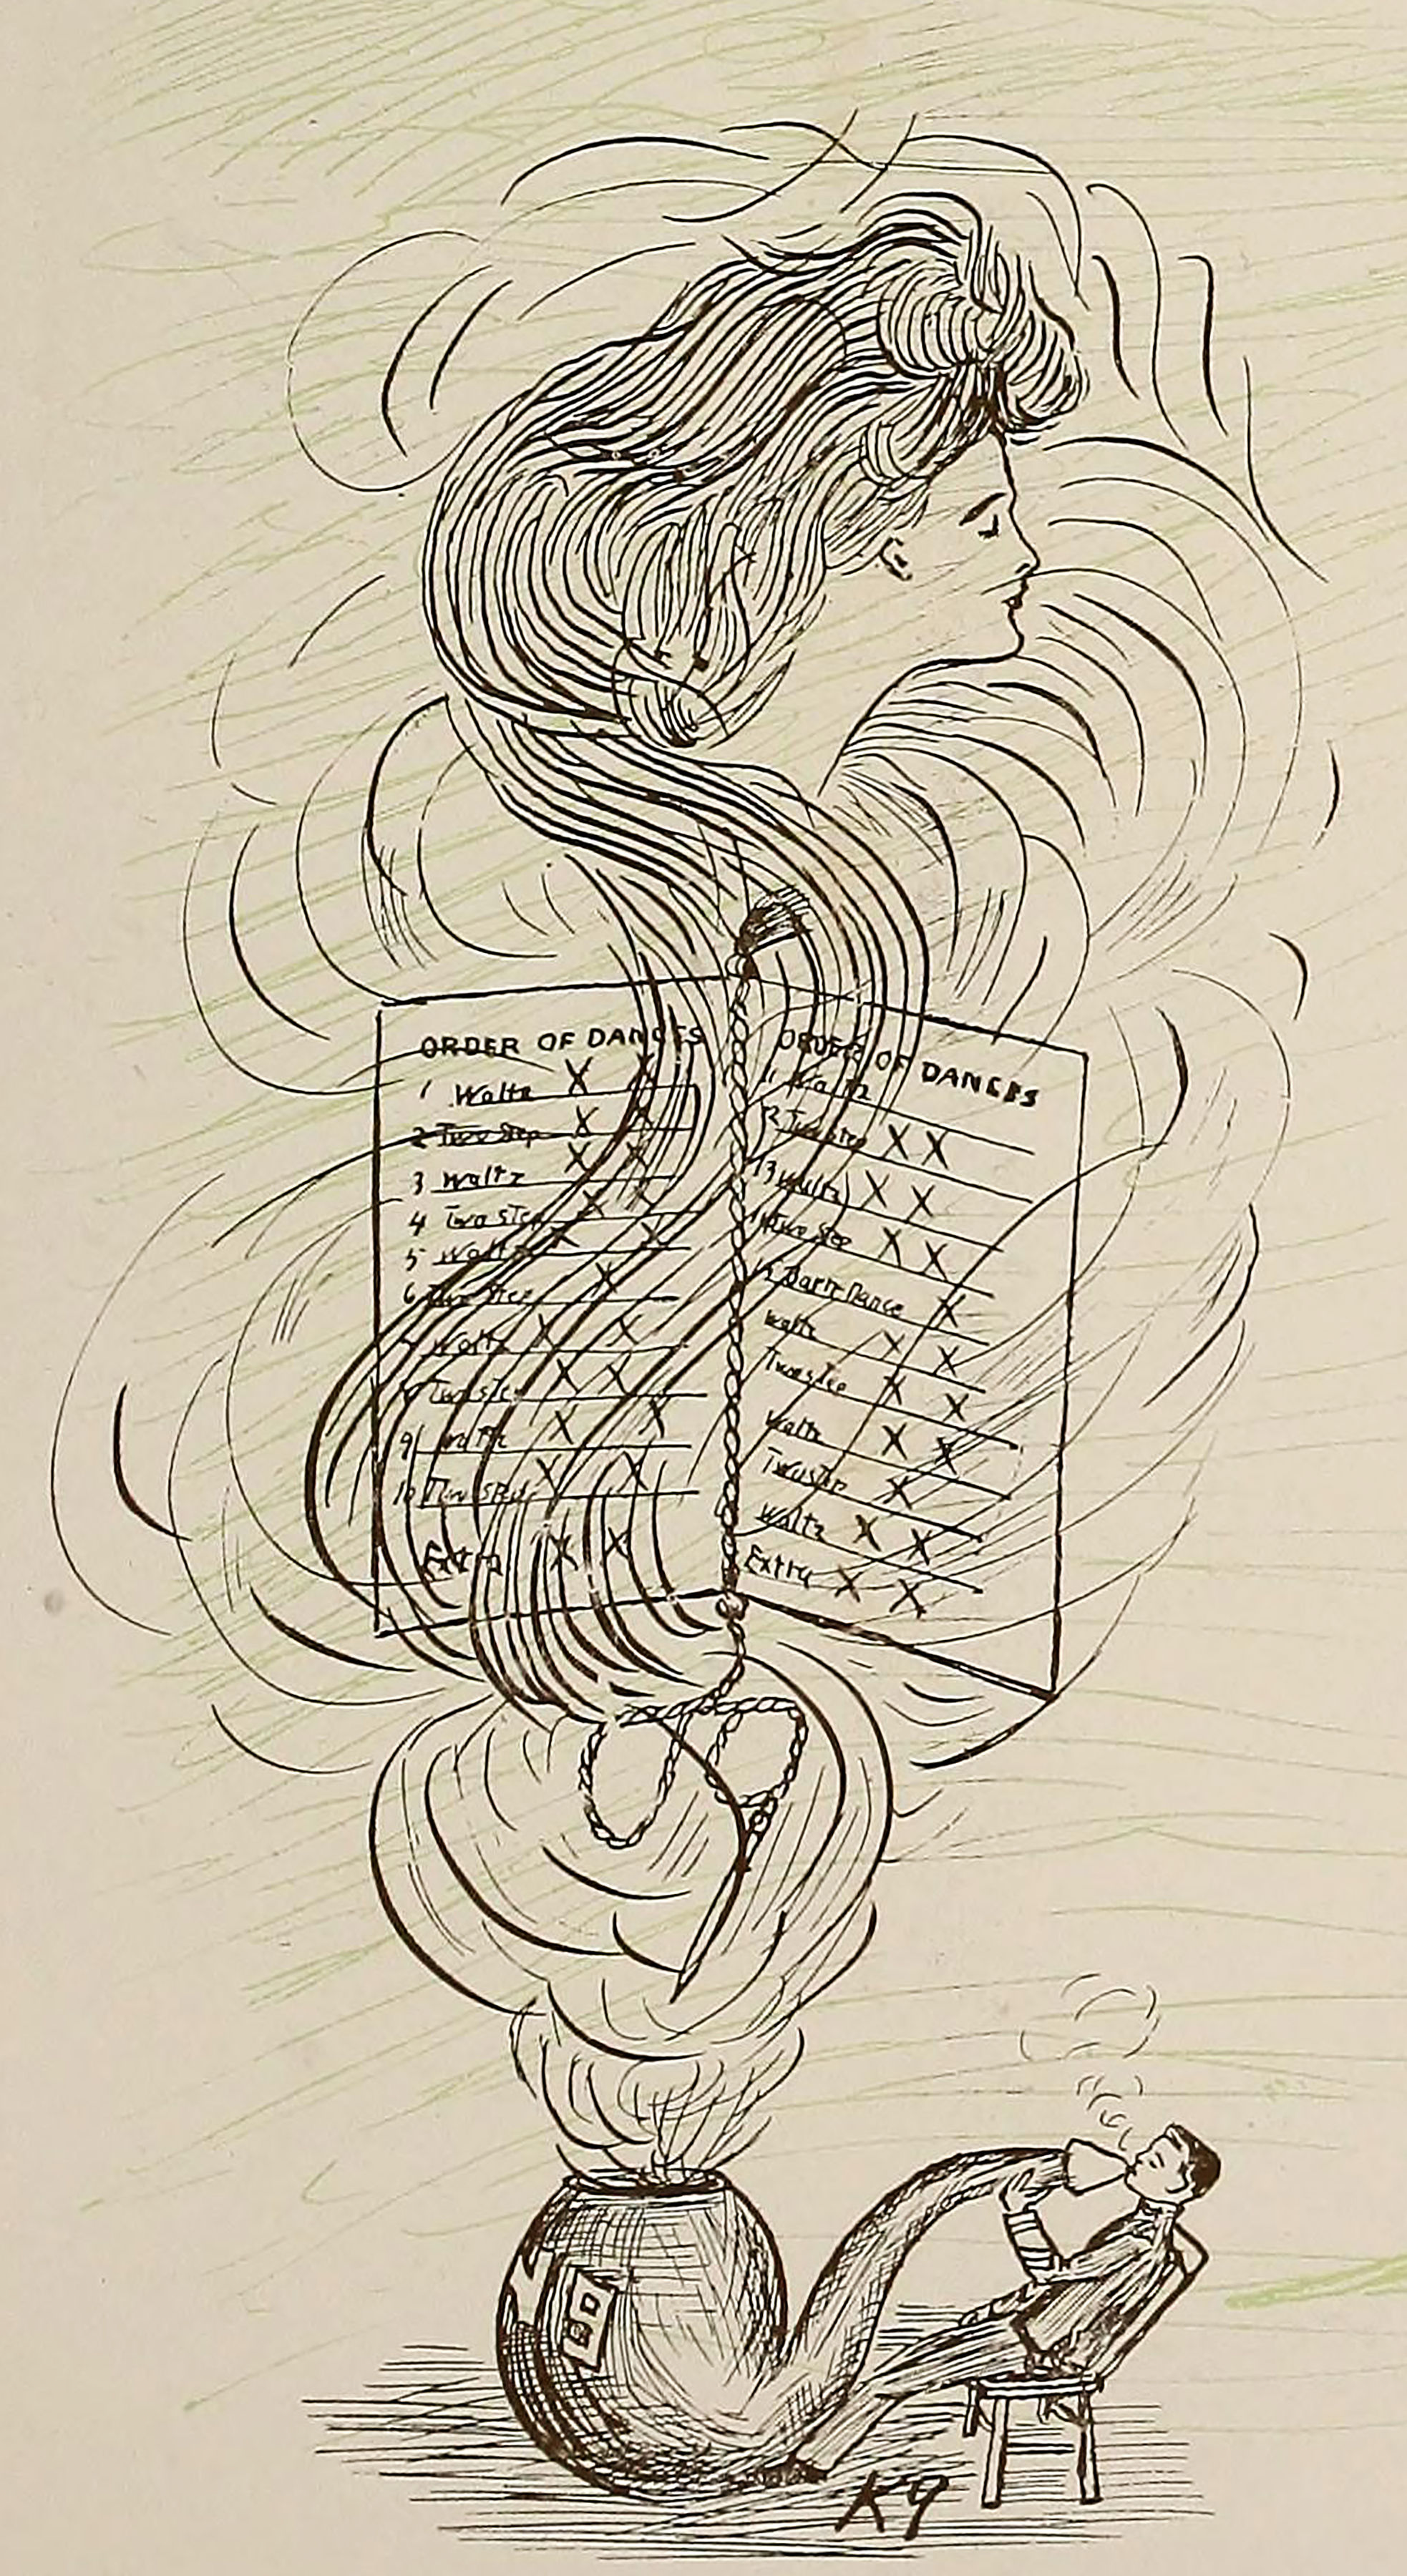 ORDER OF DANCES
1 Waltz X X
2 Two Step X X
3 Waltz X X
4 Two Step X X
5 Waltz X X
6 Two Step X
7 Waltz X X
Two Step X X
9 Waltz X X
10 Two Step X X
Extra X X
ORDER OF DANCES
11 Waltz
12 Two Step X X
13 Waltz X X
14 Two Step X X
Barn Dance X
Waltz X X
Two Step X X
Waltz X X
Two Step X
Waltz X X
Extra X X